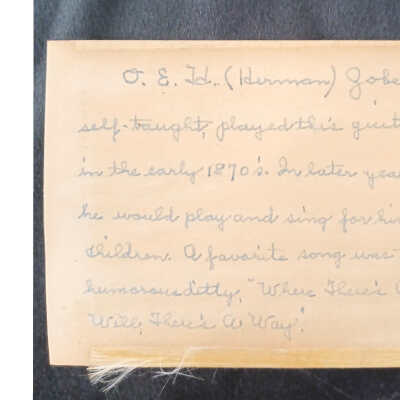 O. E. Td. (Herman) Gobe
self-taught, played this guit
in the early 1870's. In later yea
he would play and sing for hi
children. A favorite song was
humorous ditty, "Where There's
Will, There's A Way".